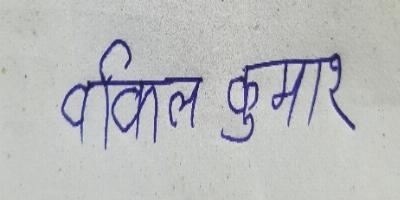 वकिल कुमार